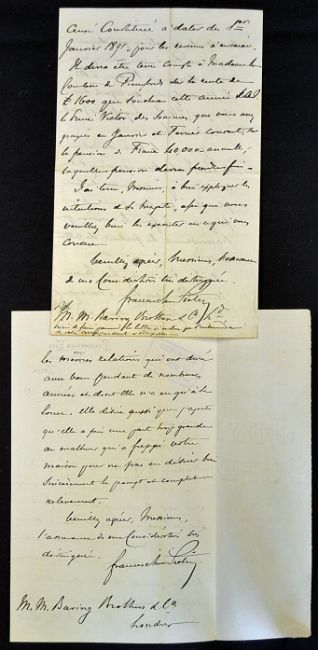 censé constitué à dater du 1er
Janvier 1891 pour les revenus à encaisser.
Il devra être tenu compte à Madame la
Comtesse de Pierrefonds de la rente de
£ 1600 que touchait cette année S.A.I.
le Prince Victor, des sommes que vous avez
payées en Janvier et Février courant, sur
la pension de Francs 40,000 annuelle,
laquelle pension devra prendre fin.
J'ai tenu, Messieurs, à bien expliquer les
intentions de Sa Majesté, afin que vous
vouliez bien les exécuter en ce qui vous
concerne.
Veuillez agréer, Messieurs, l'assurance
de ma Considération très distinguée.
Franceschini Pietri
M. M. Baring Brothers & Co. Ld.
les mêmes relations qui ont duré
avec vous pendant de nombreuses
années et dont Elle n'a eu qu'à se
louer. Elle désire aussi que j'ajoute
qu'elle a pris une part trop grande
au malheur qui a frappé votre
maison pour ne pas en désirer bien
sincèrement le prompt et complet
relèvement.
Veuillez agréer, Messieurs,
l'assurance de ma Considération très
distinguée.
Franceschini Pietri
M. M. Baring Brothers & Co.
Londres